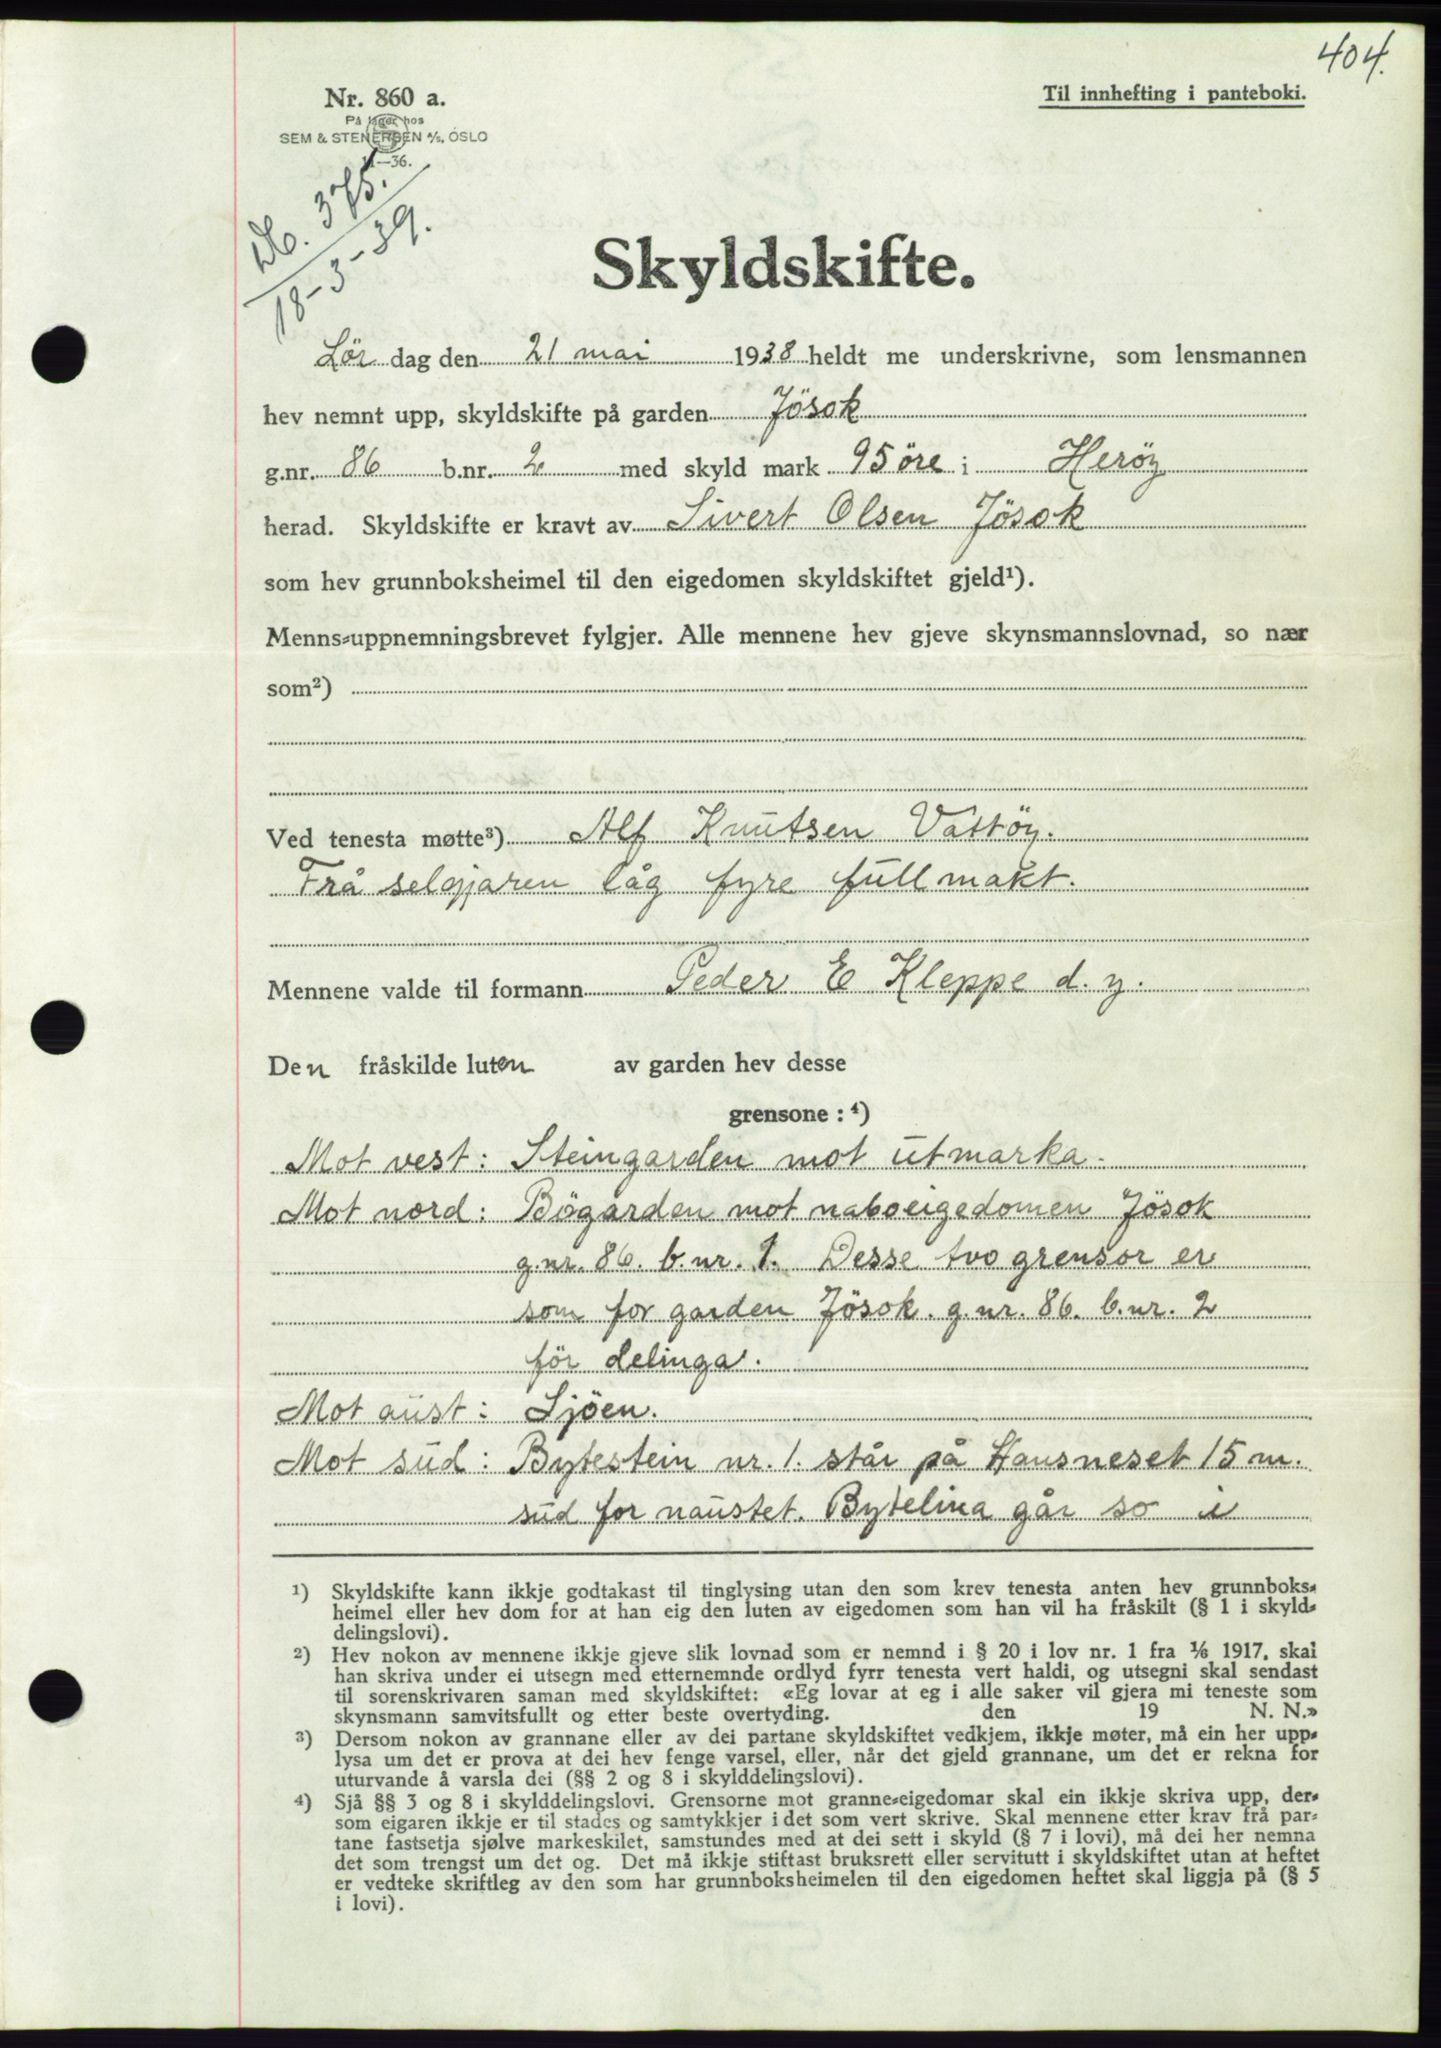 404.
Nr. 860 a.
Til innhefting i panteboki.
På lager hos
SEM & STENERSEN A/S, OSLO
11—36.
Db. 375.
18-3-39.
Skyldskifte.
Lör dag den 21 mai 1938 heldt me underskrivne, som lensmannen
hev nemnt upp, skyldskifte på garden Jösok
g.nr. 86 b.nr. 2 med skyld mark 95 öre i Heröy
herad. Skyldskifte er kravt av Sivert Olsen Jösok
som hev grunnboksheimel til den eigedomen skyldskiftet gjeld¹).
Menns-uppnemningsbrevet fylgjer. Alle mennene hev gjeve skynsmannslovnad, so nær
som²)
Ved tenesta møtte³) Alf Knutsen Vattöy.
Frå selgjaren låg fyre fullmakt.
Mennene valde til formann Peder E Kleppe d. y.
Den fråskilde luten av garden hev desse
grensone : ⁴)
Mot vest: Steingarden mot utmarka.
Mot nord: Bögarden mot naboeigedomen Jösok
g.nr. 86. b.nr. 1. Desse tvo grensor er
som for garden Jösok. g.nr. 86. b.nr. 2
för delinga.
Mot aust: Sjöen.
Mot sud: Bytestein nr. 1. står på Hausneset 15 m.
sud for naustet. Bytelina går so i
¹) Skyldskifte kann ikkje godtakast til tinglysing utan den som krev tenesta anten hev grunnboks-
heimel eller hev dom for at han eig den luten av eigedomen som han vil ha fråskilt (§ 1 i skyld-
delingslovi).
²) Hev nokon av mennene ikkje gjeve slik lovnad som er nemnd i § 20 i lov nr. 1 fra 1/6 1917, skal
han skriva under ei utsegn med etternemnde ordlyd fyrr tenesta vert haldi, og utsegni skal sendast
til sorenskrivaren saman med skyldskiftet: «Eg lovar at eg i alle saker vil gjera mi teneste som
skynsmann samvitsfullt og etter beste overtyding. den 19 N. N.»
³) Dersom nokon av grannane eller av dei partane skyldskiftet vedkjem, ikkje møter, må ein her upp-
lysa um det er prova at dei hev fenge varsel, eller, når det gjeld grannane, um det er rekna for
uturvande å varsla dei (§§ 2 og 8 i skylddelingslovi).
⁴) Sjå §§ 3 og 8 i skylddelingslovi. Grensorne mot granne-eigedomar skal ein ikkje skriva upp, der-
som eigaren ikkje er til stades og samtykkjer i det som vert skrive. Skal mennene etter krav frå par-
tane fastsetja sjølve markeskilet, samstundes med at dei sett i skyld (§ 7 i lovi), må dei her nemna
det som trengst um det og. Det må ikkje stiftast bruksrett eller servitutt i skyldskiftet utan at heftet
er vedteke skriftleg av den som har grunnboksheimelen til den eigedomen heftet skal liggja på (§ 5
i lovi).